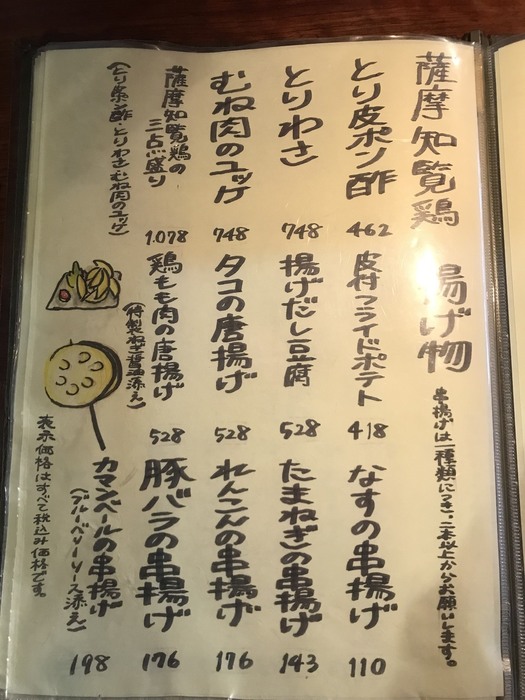 薩摩知覧鶏
とり皮ポン酢
462
とりわさ
748
むね肉のユッケ
748
薩摩知覧鶏の
三点盛り
1.078
(とり皮ポン酢・とりわさ むね肉のユッケ)
揚げ物
串揚げは一種類につき、二本以上からお願いします。
皮付フライドポテト
418
揚げだし豆腐
528
タコの唐揚げ
528
鶏もも肉の唐揚げ
(特製ねぎ醤油添え)
528
なすの串揚げ
110
たまねぎの串揚げ
143
れんこんの串揚げ
176
豚バラの串揚げ
176
カマンベールの串揚げ
(ブルーベリーソース添え)
198
表示価格はすべて税込み価格です。